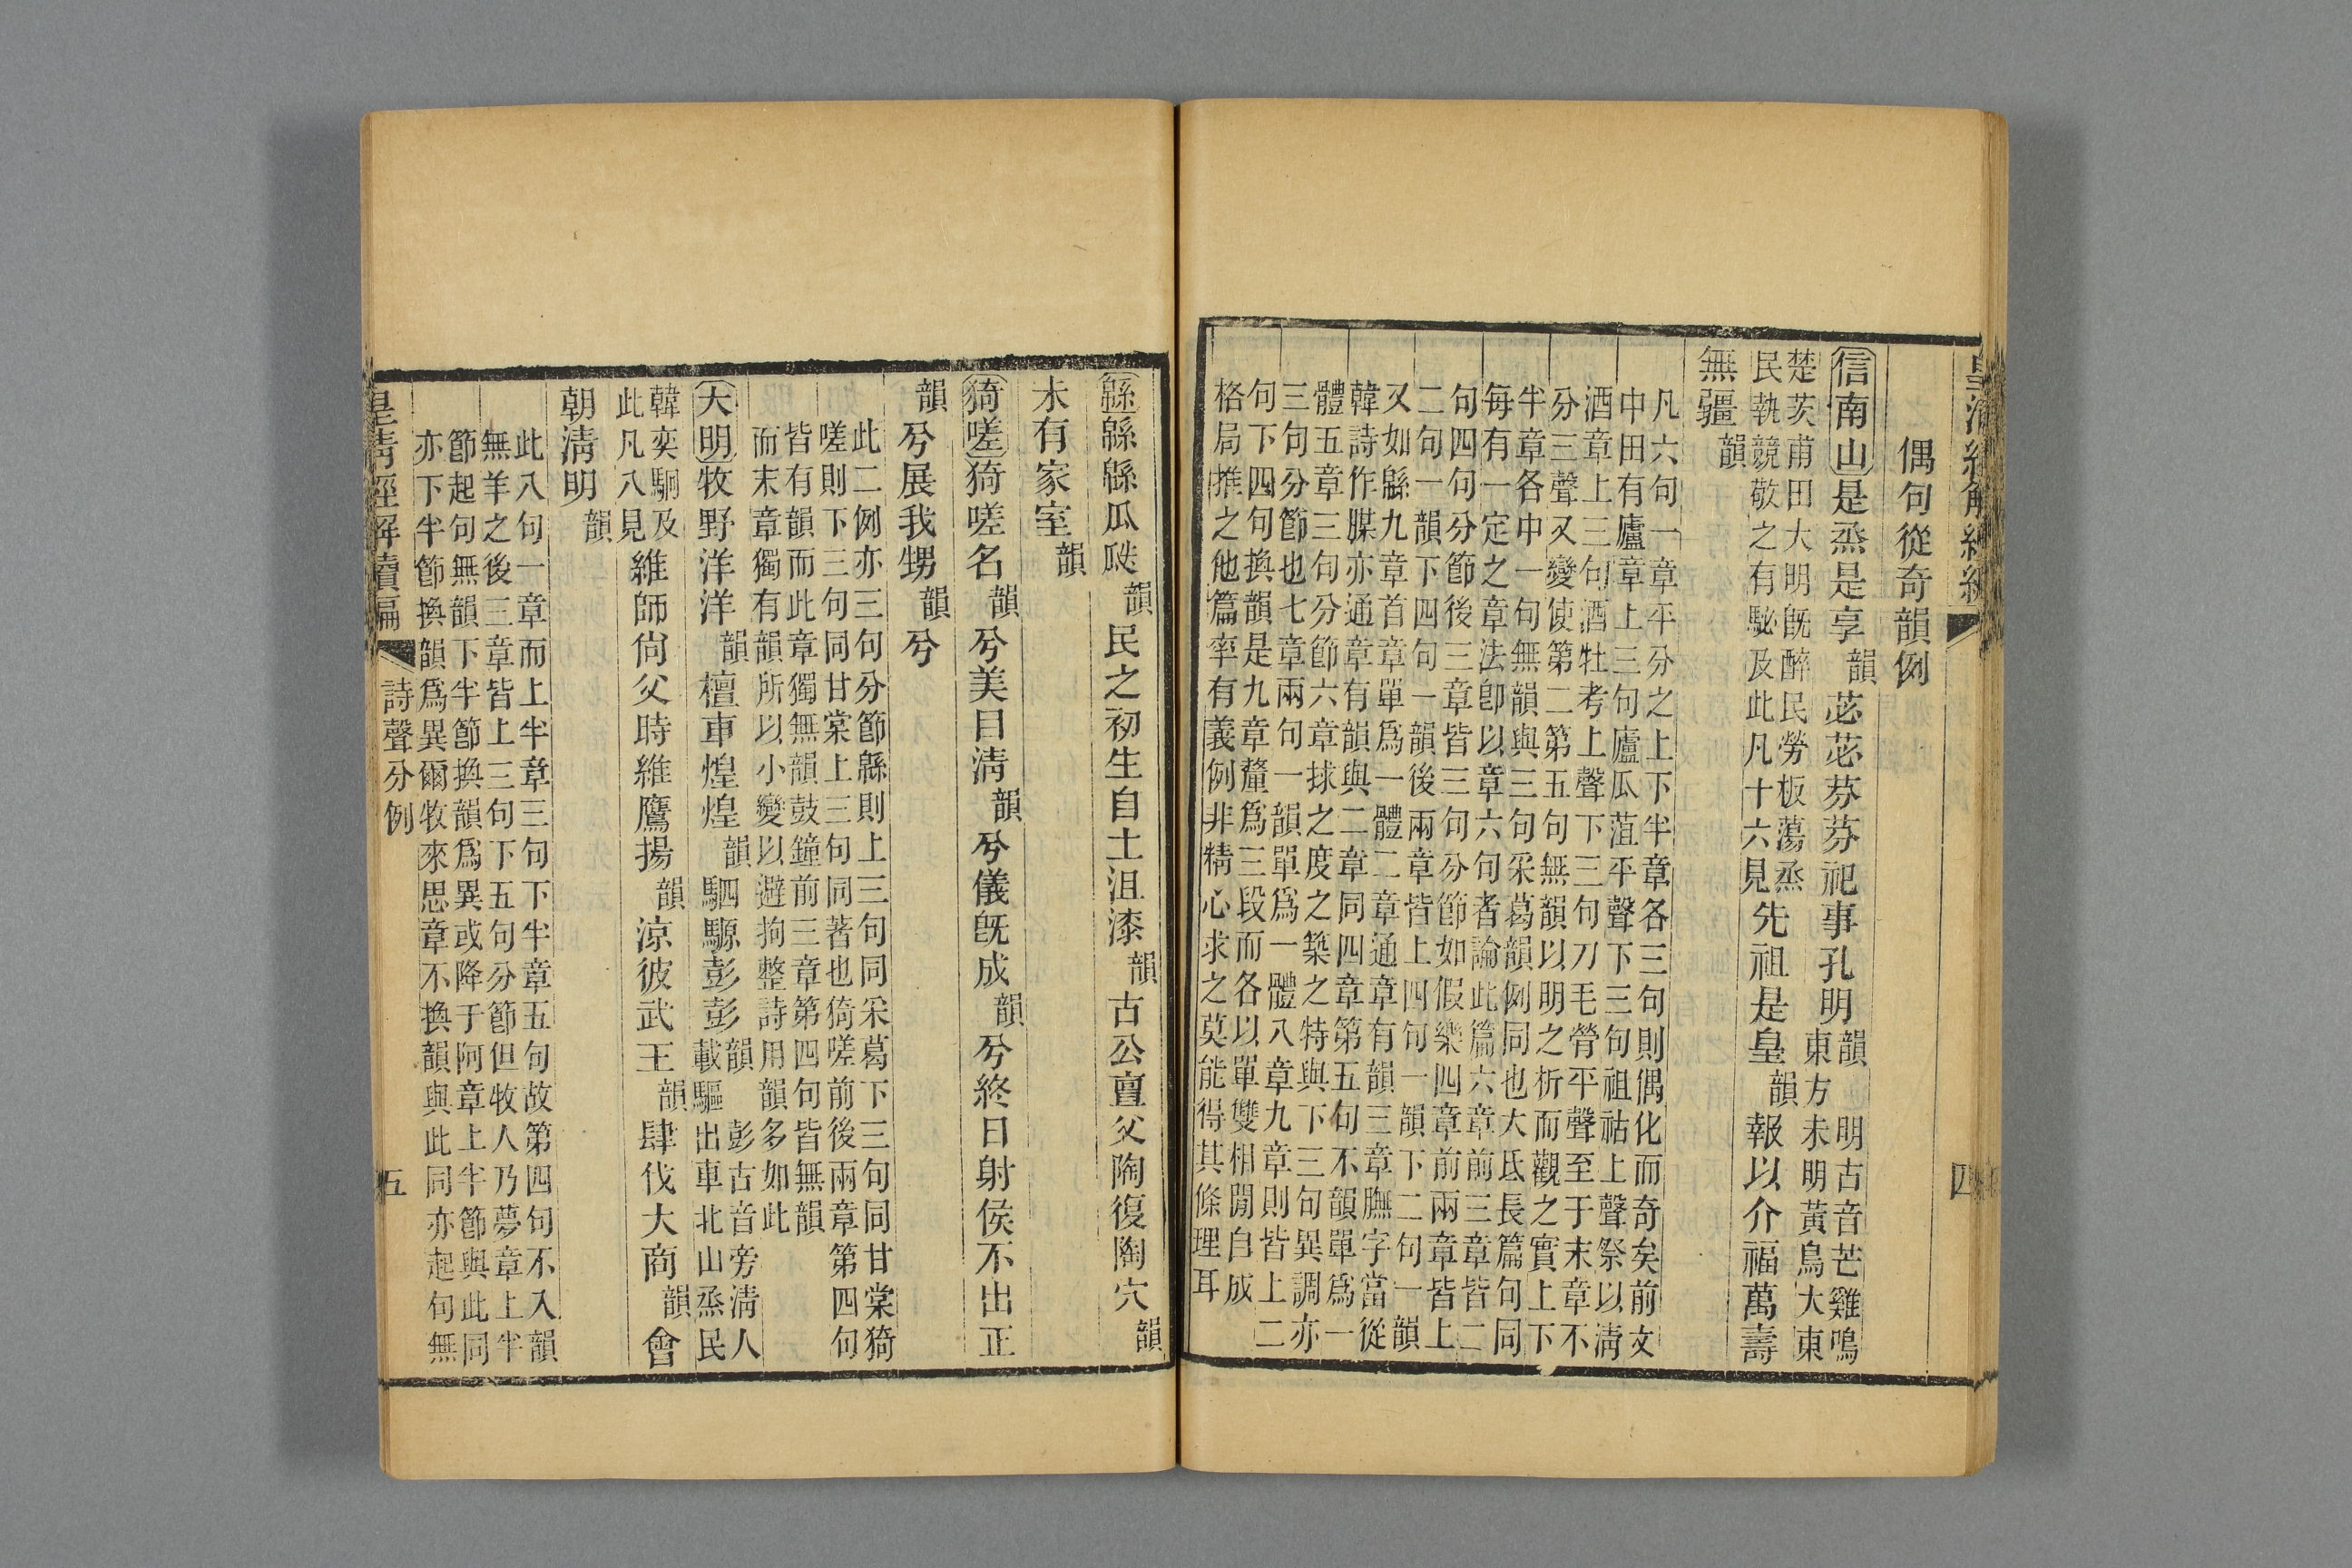 皇清經解續編
四
偶句從奇韻例
信南山是烝是享韻苾苾芬芬祀事孔明韻明古音芒雞鳴
東方未明黃鳥大東
楚茨甫田大明旣醉民勞板蕩烝
民執競敬之有駜及此凡十六見先祖是皇韻報以介福萬壽
無疆韻
凡六句一章平分之上下半章各三句則偶化而奇矣前文
中田有廬章上三句廬瓜菹平聲下三句祖祜上聲祭以淸
酒章上三句酒牡考上聲下三句刀毛膋平聲至于末章不
分三聲又變使第二第五句無韻以明之析而觀之實上下
半章各中一句無韻與三句采葛韻例同也大氐長篇句同
每有一定之章法卽以章六句者論此篇六章前三章皆二
句四句分節後三章皆三句分節如假樂四章前兩章皆上
二句一韻下四句一韻後兩章皆上四句一韻下二句一韻
又如緜九章首章單爲一體二章通章有韻三章膴字當從
韓詩作腜亦通章有韻與二章同四章第五句不韻單爲一
體五章三句分節六章捄之度之築之特與下三句異調亦
三句分節也七章兩句一韻單爲一體八章九章則皆上二
句下四句換韻是九章釐爲三段而各以單雙相閒自成
格局推之他篇率有義例非精心求之莫能得其條理耳
緜緜緜瓜瓞韻民之初生自土沮漆韻古公亶父陶復陶穴韻
未有家室韻
猗嗟猗嗟名韻兮美目淸韻兮儀旣成韻兮終日射侯不出正
韻兮展我甥韻兮
此二例亦三句分節緜則上三句同采葛下三句同甘棠猗
嗟則下三句同甘棠上三句同著也猗嗟前後兩章第四句
皆有韻而此章獨無韻鼓鐘前三章第四句皆無韻
而末章獨有韻所以小變以避拘整詩用韻多如此
大明牧野洋洋韻檀車煌煌韻駟騵彭彭韻彭古音旁淸人
載驅出車北山烝民
韓奕駉及
此凡八見維師尙父時維鷹揚韻涼彼武王韻肆伐大商韻會
朝淸明韻
此八句一章而上半章三句下半章五句故第四句不入韻
無羊之後三章皆上三句下五句分節但牧人乃夢章上半
節起句無韻下半節換韻爲異或降于阿章上半節與此同
亦下半節換韻爲異爾牧來思章不換韻與此同亦起句無
皇淸經解續編
詩聲分例
五